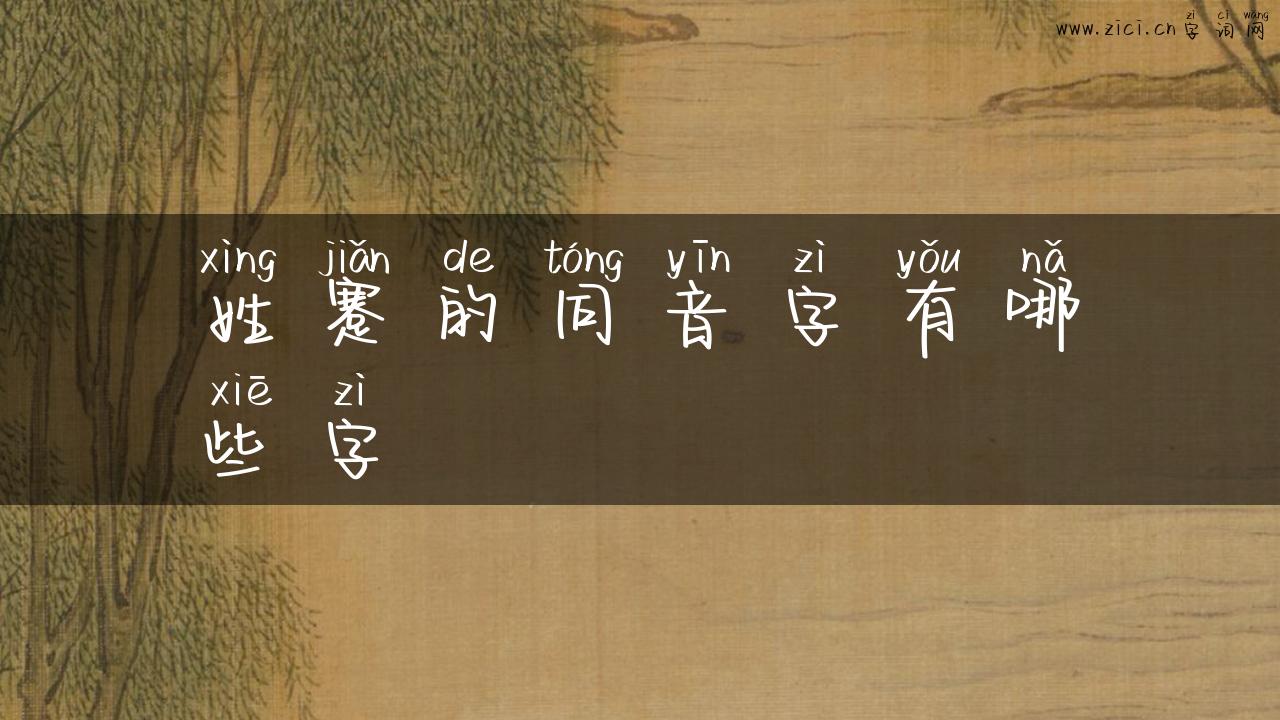 zì cí wǎng
www.zici.cn 字词网
xìng jiǎn de tóng yīn zì yǒu nǎ
姓蹇的同音字有哪
xiē zì
些字